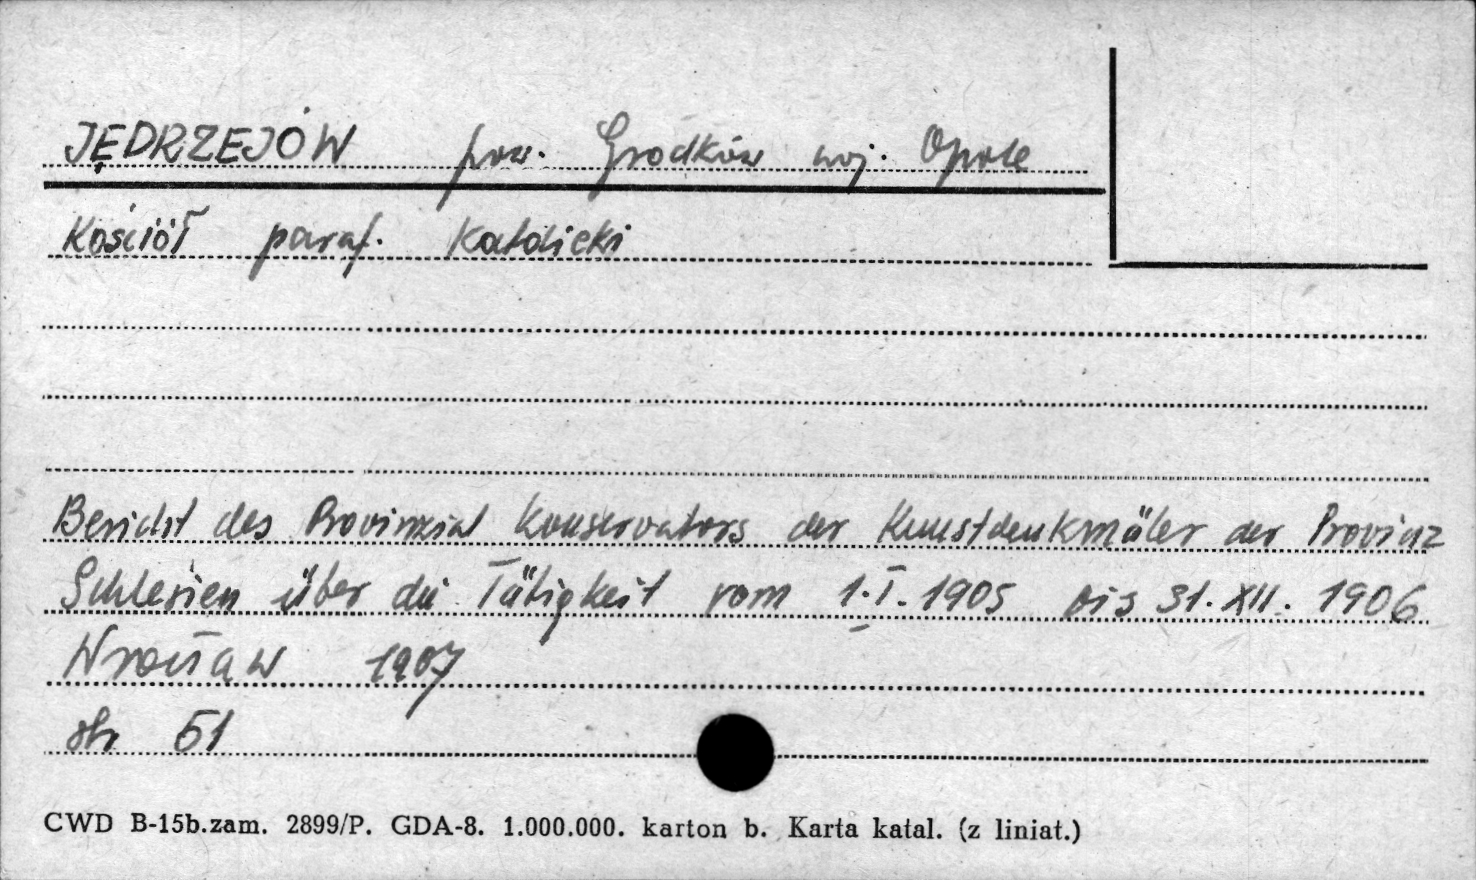 JĘDRZEJÓW pow. Grodków woj. Opole
Kościół paraf. Katolicki
Bericht des Provinzial Konservators der Kunstdenkmäler der Provinz
Schlesien über die Tätigkeit vom 1.I.1905 bis 31.XII.1906
Wrocław 1907
str 51
CWD B-15b.zam. 2899/P. GDA-8. 1.000.000. karton b. Karta katal. (z liniat.)